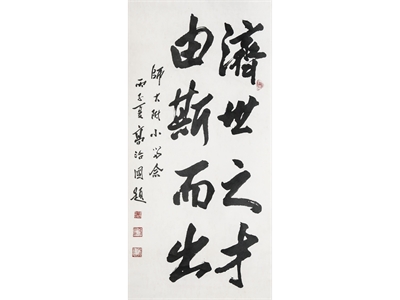 濟世之才
由斯而出
師大附小留念
丙子夏 治國題